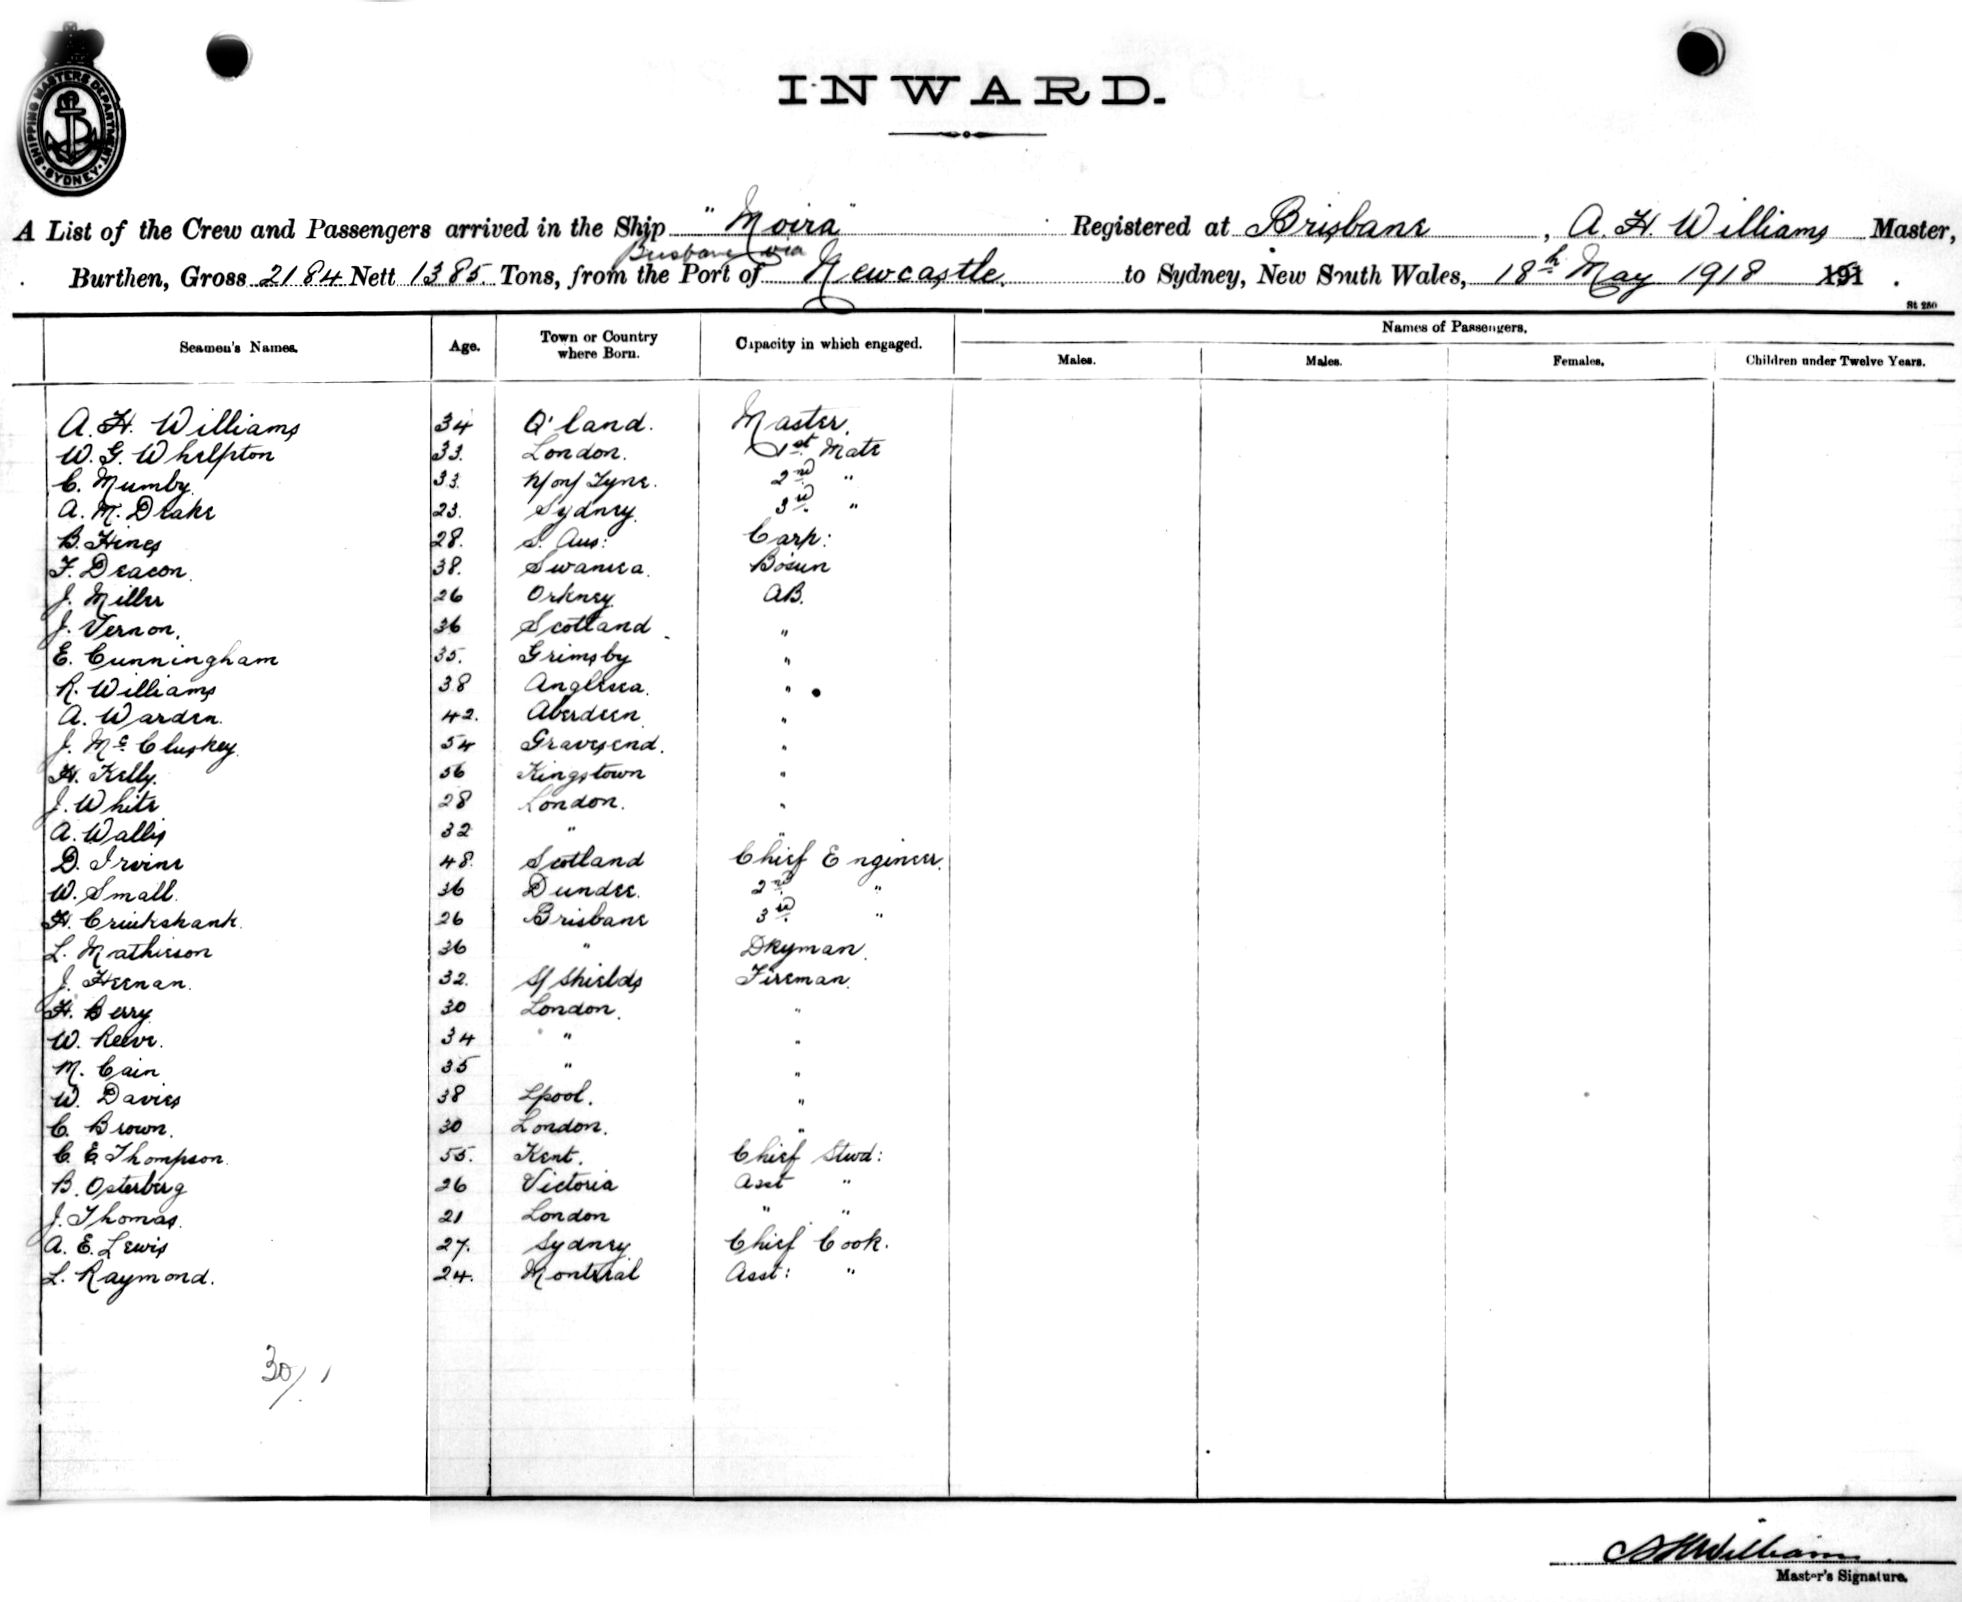 SHIPPING MASTERS DEPARTMENT
SYDNEY
INWARD.
A List of the Crew and Passengers arrived in the Ship "Moira" Registered at Brisbane, A. H. Williams Master,
Brisbane via
Burthen, Gross 2184 Nett 1385. Tons, from the Port of Newcastle. to Sydney, New South Wales, 18th May 1918 191 .
St 250
Seamen's Names. Age. Town or Country where Born. Capacity in which engaged. Names of Passengers.
Males. Males. Females. Children under Twelve Years.
A. H. Williams 34 Q'land. Master.
W. G. Whelpton 33. London. 1st Mate
C. Mumby. 33. N/on/Tyne. 2nd "
A. M. Drake 23. Sydney. 3rd "
B. Hines 28. S. Aus: Carp:
F. Deacon. 38. Swansea. Bosun
J. Miller 26 Orkney. AB.
J. Vernon. 36 Scotland. "
E. Cunningham 35. Grimsby "
R. Williams 38 Anglesea. "
A. Warden. 42. Aberdeen. "
J. McCluskey. 54 Gravesend. "
H. Kelly. 56 Kingstown "
J. White 28 London. "
A. Wallis 32 " "
D. Irvine 48. Scotland Chief Engineer.
W. Small. 36 Dundee. 2nd "
H. Cruikshank. 26 Brisbane 3rd "
L. Mathieson 36 " Dkyman.
J. Heenan. 32. S/Shields Fireman.
H. Berry. 30 London. "
W. Reeve. 34 " "
M. Cain 35 " "
W. Davies 38 Lpool. "
C. Brown. 30 London. "
C. E. Thompson. 55. Kent. Chief Stwd:
B. Osterberg 26 Victoria Asst "
J. Thomas. 21 London " "
A. E. Lewis 27. Sydney. Chief Cook.
L. Raymond. 24. Montreal Asst: "
30/1
A H Williams.
Master's Signature.